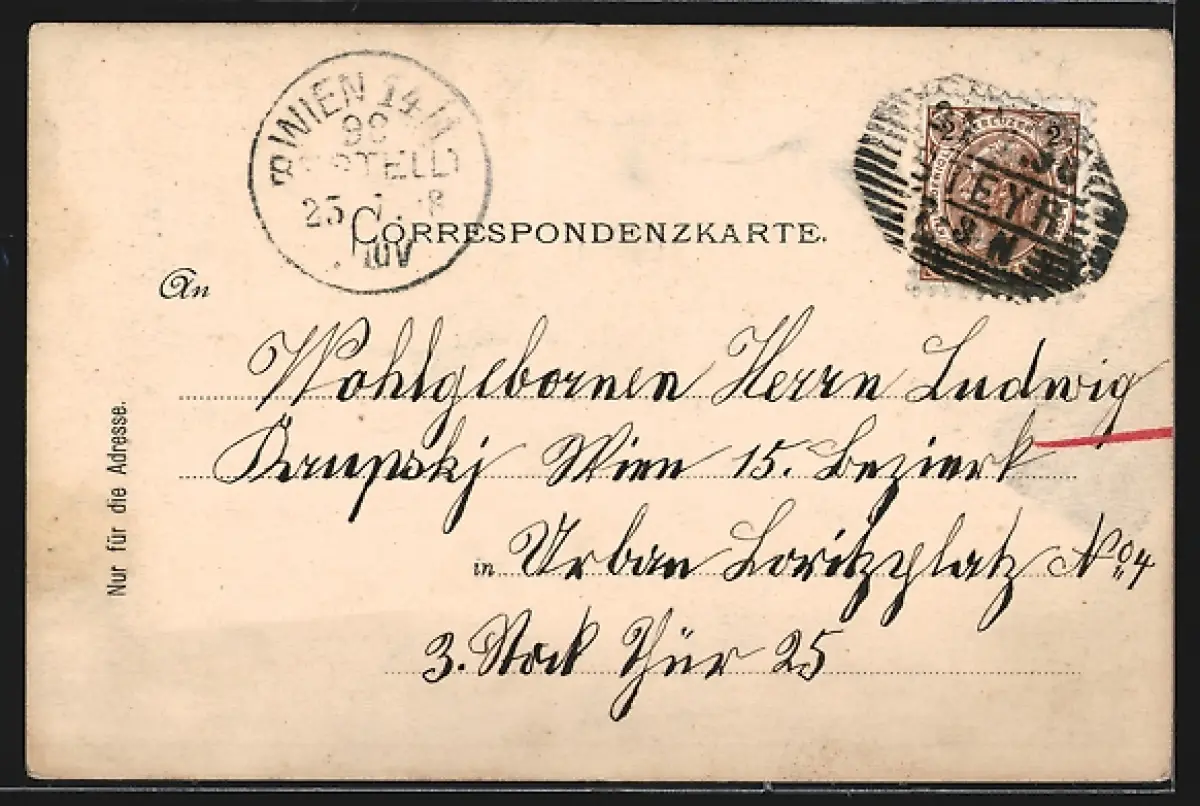 WIEN 14/1
BESTELLT
25
CORRESPONDENZKARTE.
2 KREUZER 2
EYR
An
Wohlgebornen Herrn Ludwig
Krupskj Wien 15. Bezierk
in Urban Loritzplatz No 4
3. Stock Thür 25
Nur für die Adresse.